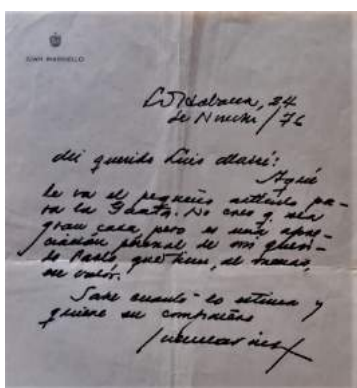 JUAN MARINELLO
La Habana, 24
de Novbre/76
Mi querido Luis Marré:
Aquí
le va el pequeño artículo pa-
ra la Gaceta. No creo q. sea
gran cosa pero es una apre-
ciación personal de mi queri-
do Pablo que tiene, al menos,
ese valor.
Sabe cuanto lo estima y
quiere su compañero